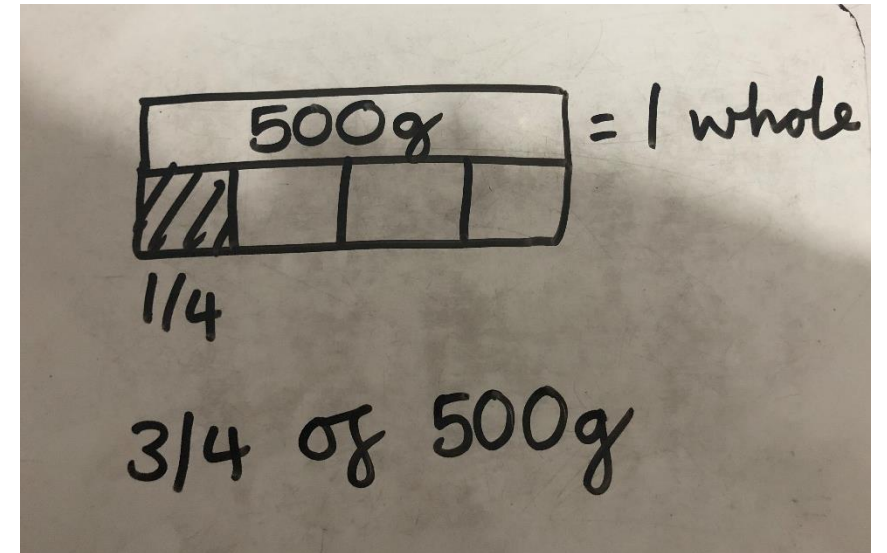 500g = 1 whole
1/4
3/4 of 500g